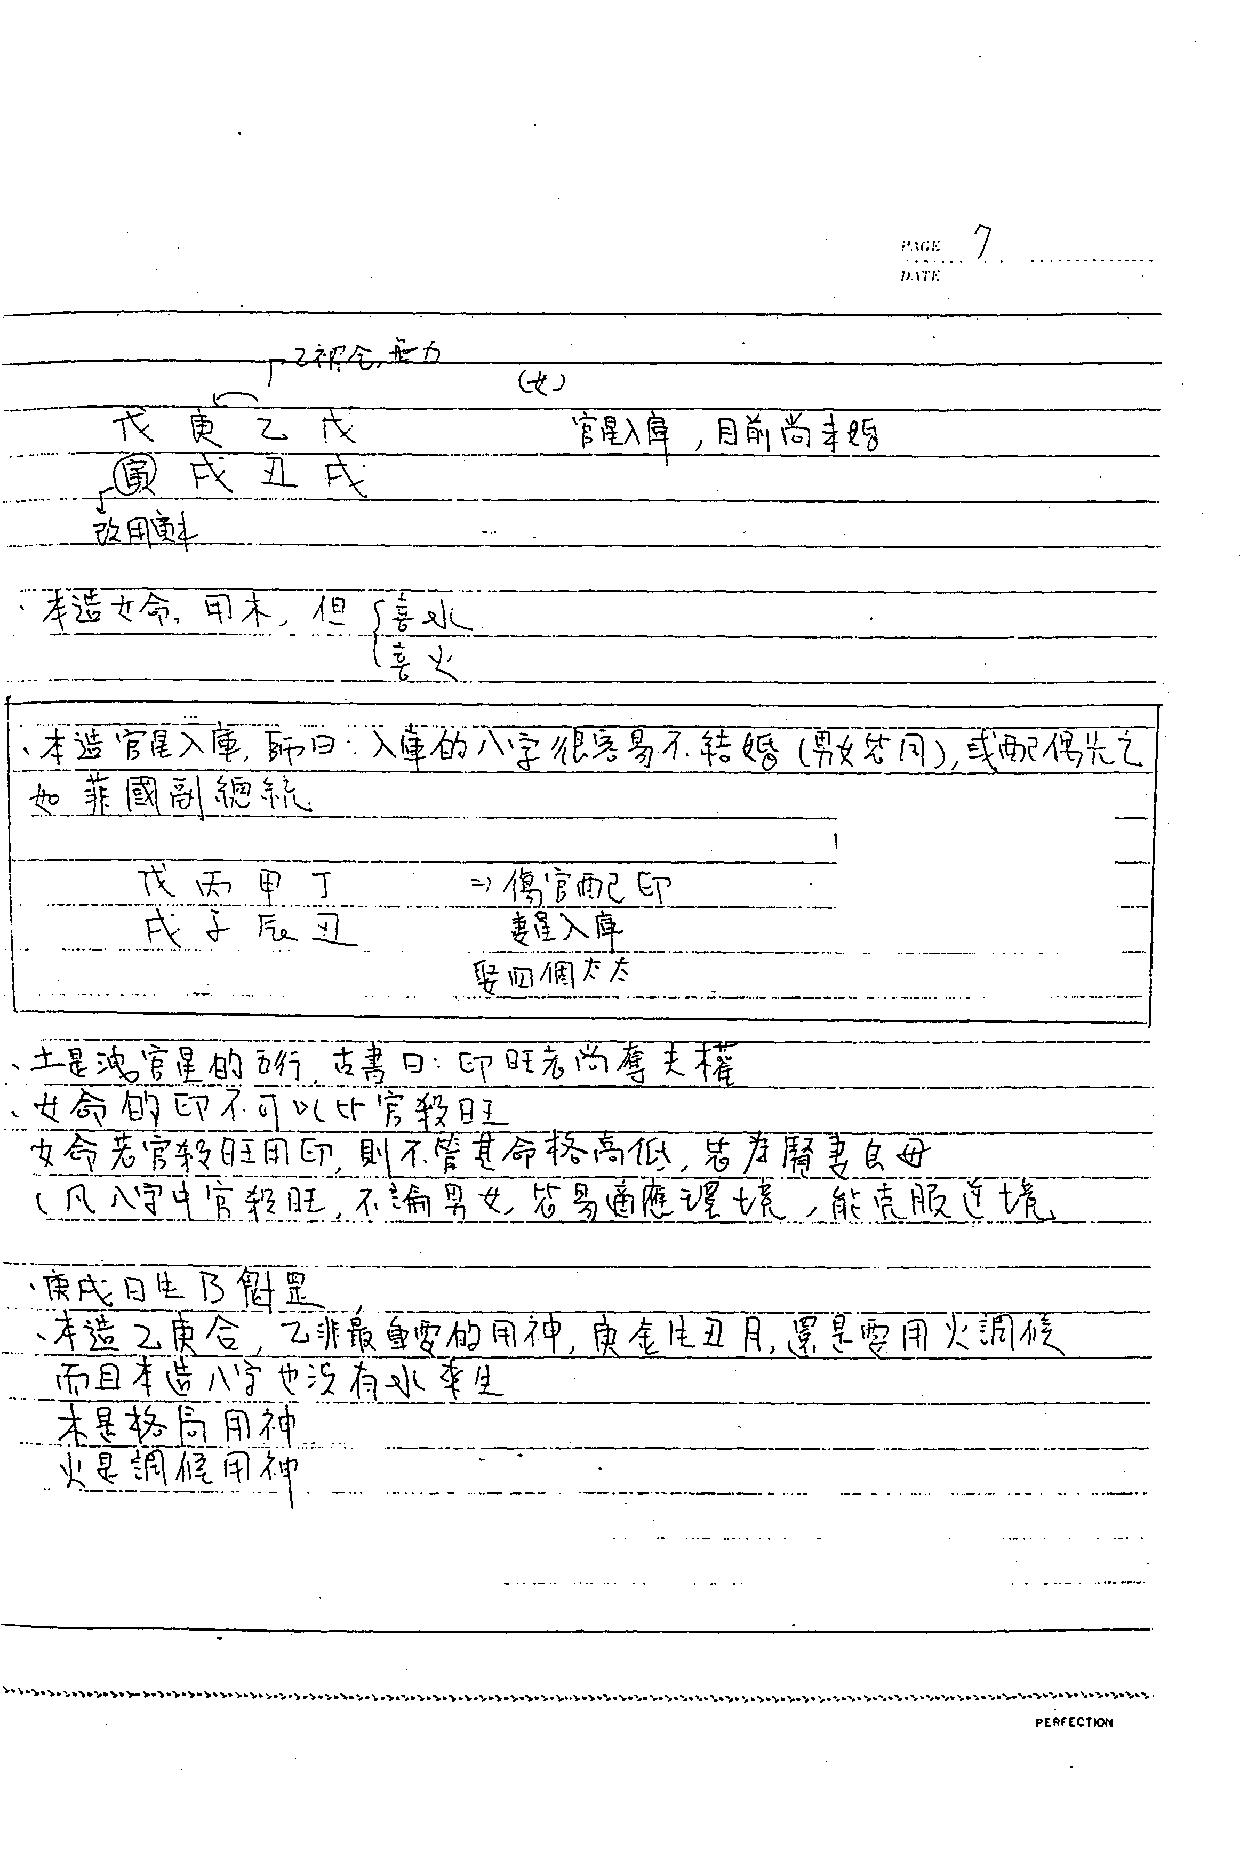 PAGE 7
DATE
乙被合,無力
(女)
戊 庚 乙 戊 官星入庫,目前尚未婚
寅 戌 丑 戌
改用寅木
、本造女命,用木,但 喜水
喜火
、本造官星入庫,師曰:入庫的八字很容易不結婚(男女皆同),或配偶先亡
如菲國副總統
戊 丙 甲 丁 => 傷官配印
戌 子 辰 丑 妻星入庫
娶四個太太
、土是洩官星的五行,古書曰:印旺者尚奪夫權
、女命的印不可以比官殺旺
女命若官殺旺用印,則不管其命格高低,皆為賢妻良母
(凡八字中官殺旺,不論男女,皆易適應環境,能克服逆境
、庚戌日生乃魁罡
、本造乙庚合,乙非最重要的用神,庚金生丑月,還是要用火調候
而且本造八字也沒有水來生
木是格局用神
火是調候用神
PERFECTION